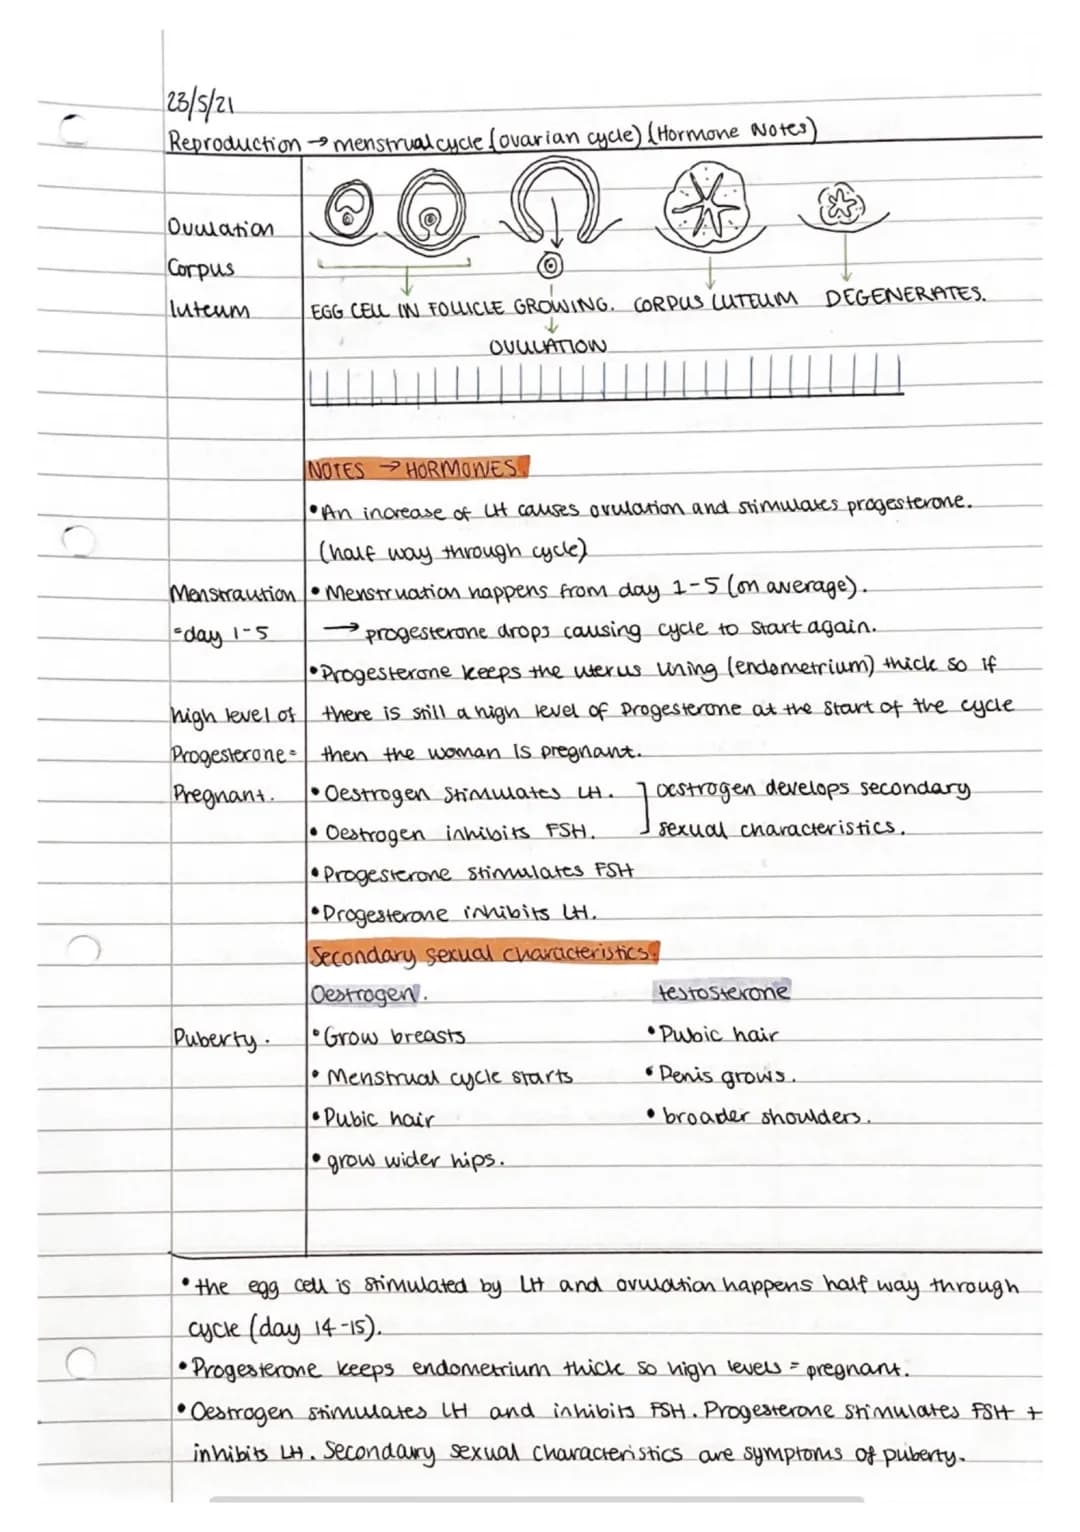 23/5/21
Reproduction → menstrual cycle (ovarian cycle) (Hormone Notes)
Ovulation
Corpus
luteum
EGG CELL IN FOLLICLE GROWING. CORPUS LUTEUM DEGENERATES.
OVULATION
NOTES → HORMONES.
• An increase of LH causes ovulation and stimulates progesterone.
(half way through cycle)
Menstraution
=day 1-5
• Menstruation happens from day 1-5 (on average).
→ progesterone drops causing cycle to start again.
• Progesterone keeps the uterus lining (endometrium) thick so if
high level of
Progesterone =
Pregnant.
there is still a high level of Progesterone at the start of the cycle
then the woman is pregnant.
• Oestrogen stimulates LH. ] oestrogen develops secondary
• Oestrogen inhibits FSH. sexual characteristics.
• Progesterone stimulates FSH
• Progesterone inhibits LH.
Secondary sexual characteristics.
Oestrogen. testosterone
Puberty.
• Grow breasts • Pubic hair
• Menstrual cycle starts • Penis grows.
• Pubic hair • broader shoulders.
• grow wider hips.
• the egg cell is stimulated by LH and ovulation happens half way through
cycle (day 14-15).
• Progesterone keeps endometrium thick so high levels = pregnant.
• Oestrogen stimulates LH and inhibits FSH. Progesterone stimulates FSH +
inhibits LH. Secondary sexual characteristics are symptoms of puberty.